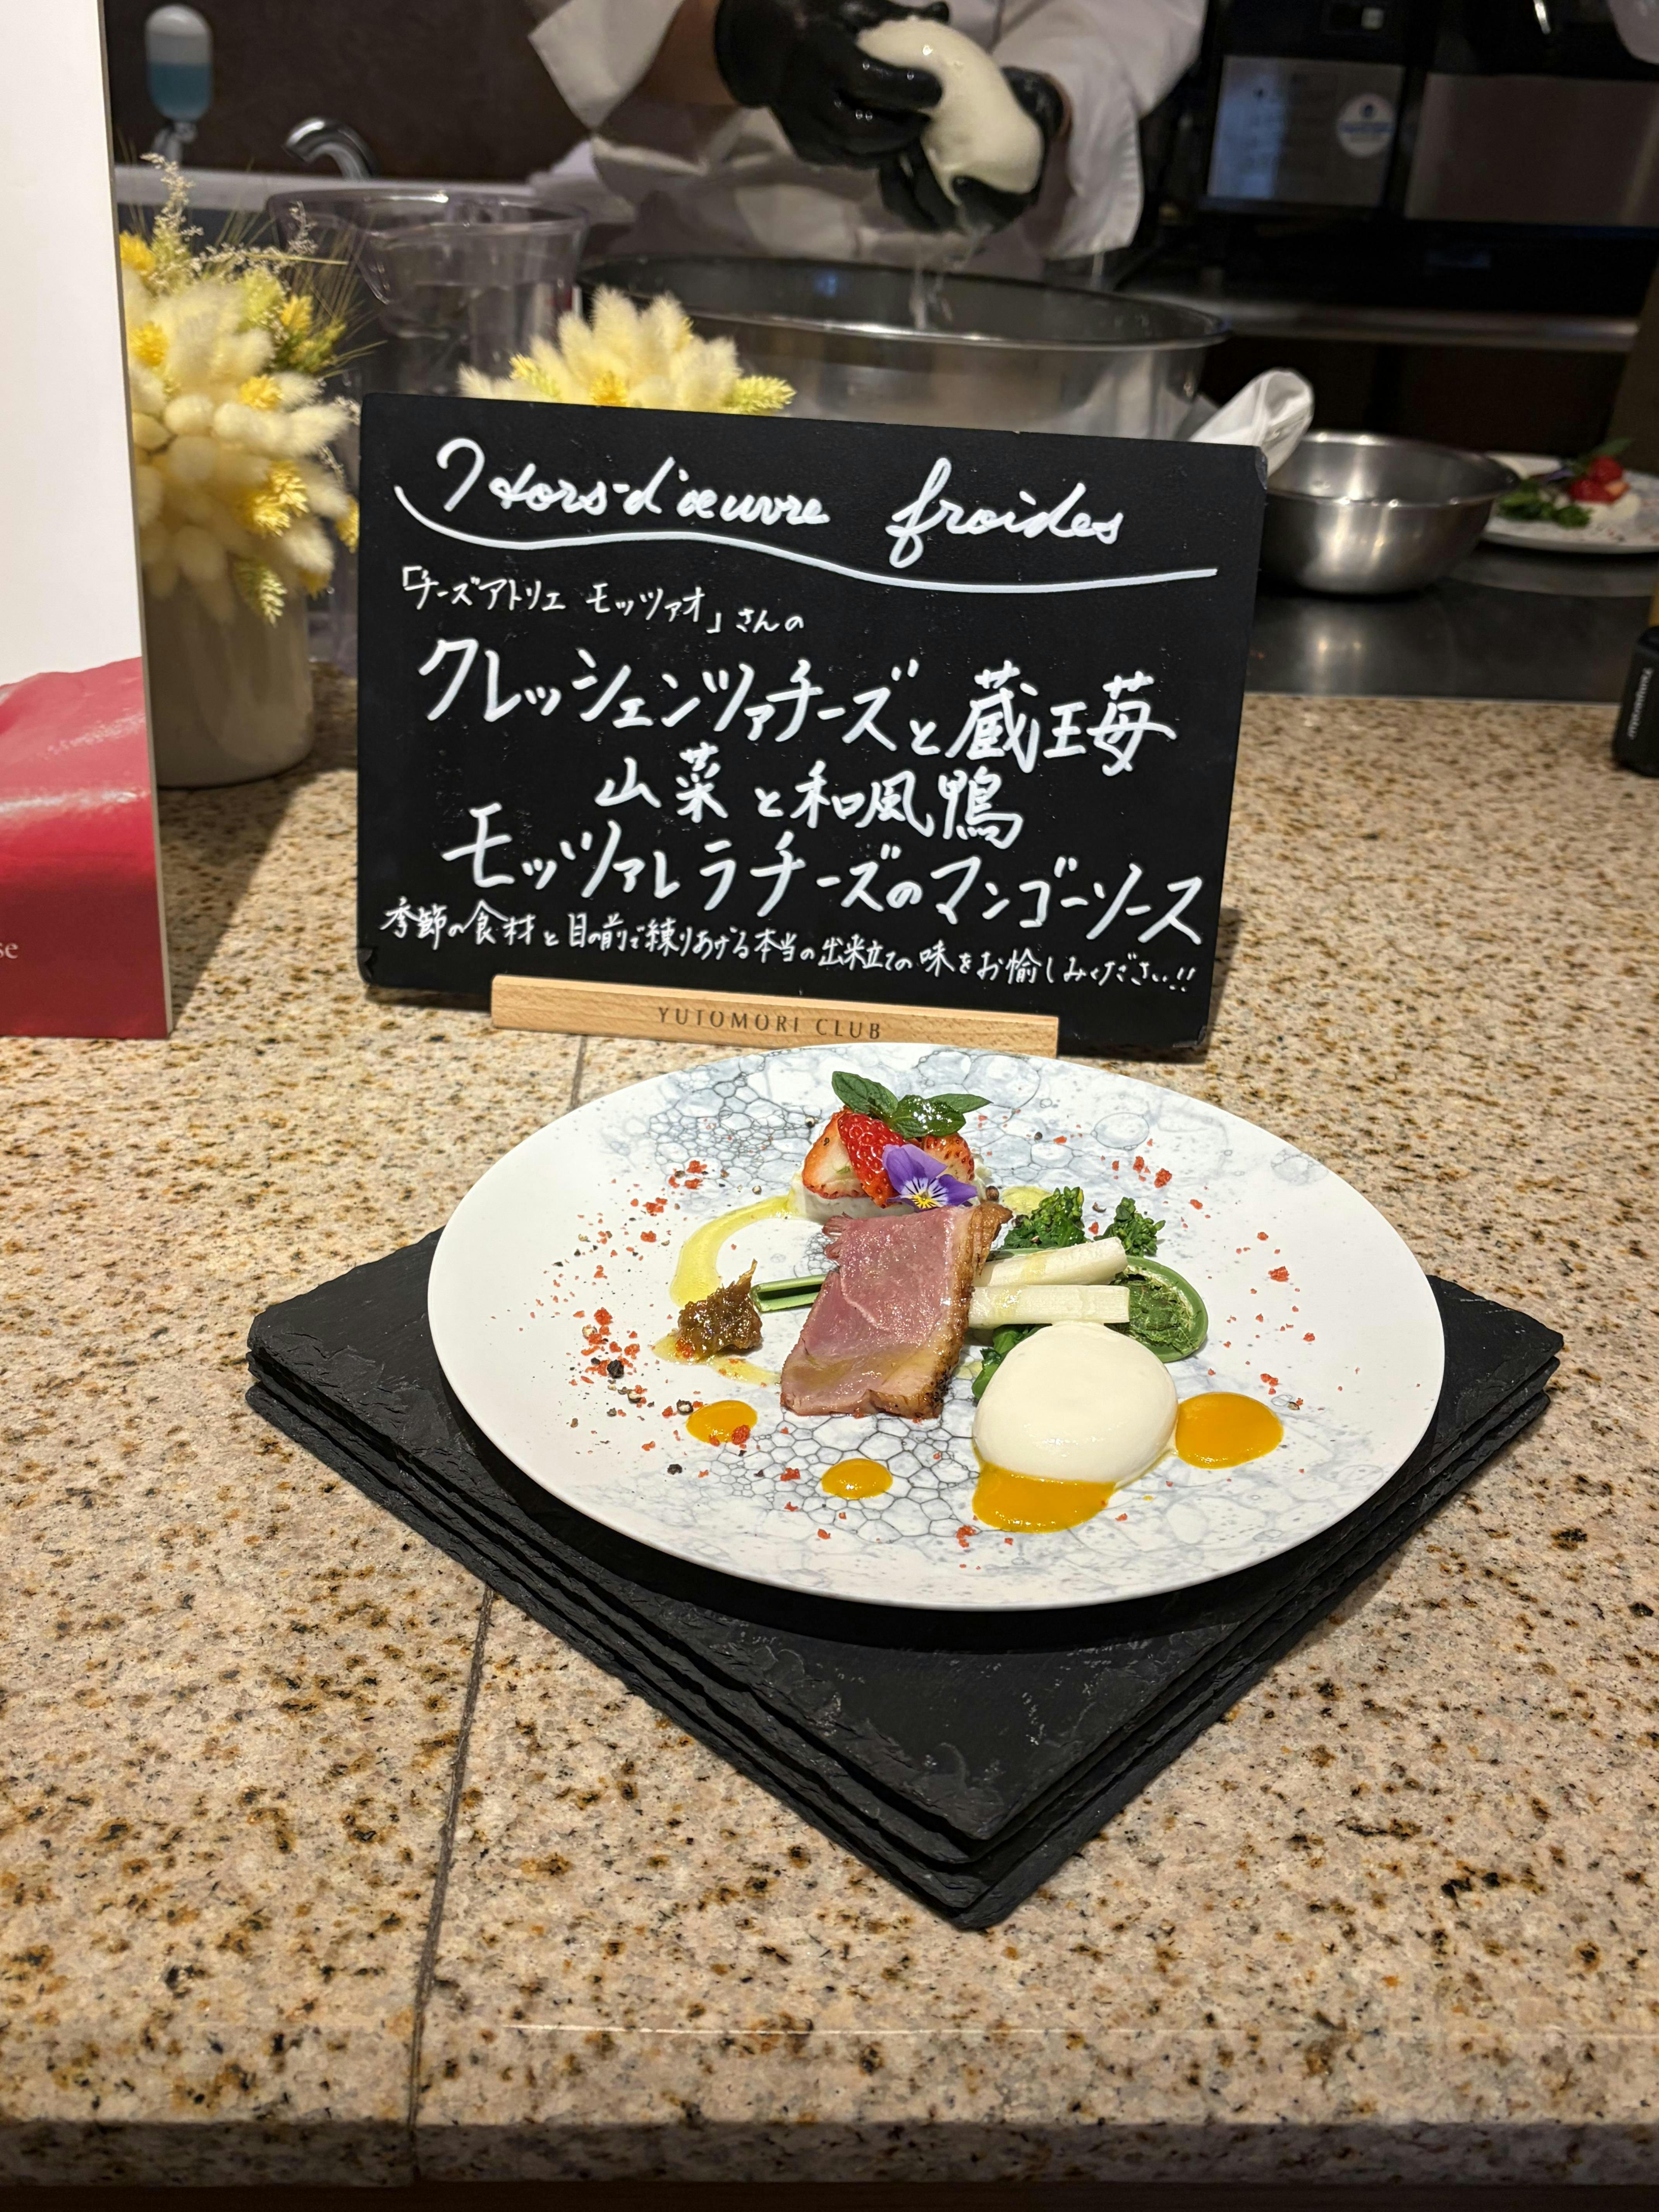 Hors-d'œuvre froides
「チーズアトリエ モッツァオ」さんの
クレッシェンツァチーズと蔵王苺
山菜と和風鴨
モッツァレラチーズのマンゴーソース
季節の食材と目の前で練りあげる本当の出来立ての味をお愉しみください!!
YUTOMORI CLUB
se